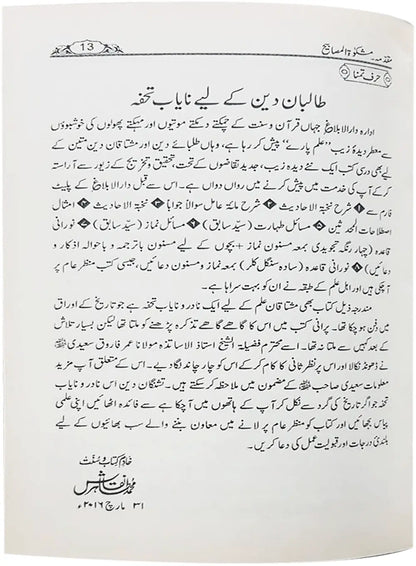 13
مقدمہ۔ مشکوٰۃ المصابیح
حرفِ تمنا
طالبان دین کے لیے نایاب تحفہ
ادارہ دارالابلاغ جہاں قرآن و سنت کے چمکتے دمکتے موتیوں اور مہکتے پھولوں کی خوشبوؤں
سے معطر دیدہ زیب ”علم پارے“ پیش کر رہا ہے، وہاں طلبائے دین اور مشتاقان دین متین کے
لیے بھی درسی کتب ایک نئے دیدہ زیب، جدید تقاضوں کے تحت، تحقیق و تخریج کے زیور سے آراستہ
کر کے آپ کی خدمت میں پیش کرنے میں رواں دواں ہے۔ اس سے قبل دارالابلاغ کے پلیٹ
فارم سے ❶ شرح نخبۃ الاحادیث ❷ شرح مائۃ عامل سوالاً جواباً ❸ نخبۃ الاحادیث ❹ امثال
اصطلاحات المحدثین ❺ مسائل طہارت (سید سابق) ❻ مسائل نماز (سید سابق) ❼ نورانی
قاعدہ (چہار رنگہ تجویدی بمعہ مسنون نماز + بچوں کے لیے مسنون باترجمہ و باحوالہ اذکار و
دعائیں) ❽ نورانی قاعدہ (سادہ سنگل کلر) بمعہ نماز و مسنون دعائیں، جیسی کتب منظر عام پر
آ چکی ہیں اور اہل علم کے طبقہ نے ان کو بہت سراہا ہے۔
مندرجہ ذیل کتاب بھی مشتاقان علم کے لیے ایک نادر و نایاب تحفہ ہے جو تاریخ کے اوراق
میں دفن ہو چکا تھا۔ پرانی کتب میں اس کا گاہے گاہے تذکرہ پڑھنے کو ملتا تھا لیکن بسیار تلاش
کے بعد کہیں سے ملتا نہ تھا۔ اسے محترم فضیلۃ الشیخ استاذ الاساتذہ مولانا عمر فاروق سعیدی
نے ڈھونڈ نکالا اور اس پر نظر ثانی کا کام کر کے اس کو چار چاند لگا دیے۔ اس کے متعلق آپ مزید
معلومات سعیدی صاحب کے مضمون میں ملاحظہ کر سکتے ہیں۔ تشنگان دین اس نادر و نایاب
تحفہ جو اگر تاریخ کی گرد سے نکل کر آپ کے ہاتھوں میں آ چکا ہے سے فائدہ اٹھائیں اپنی علمی
پیاس بجھائیں اور کتاب کو منظر عام پر لانے میں معاون بننے والے سب بھائیوں کے لیے
بلندئ درجات اور قبولیت عمل کی دعا کریں۔
خادم کتاب و سنت
محمد طاہر نقاش
۳۱ مارچ ۲۰۱۶ء